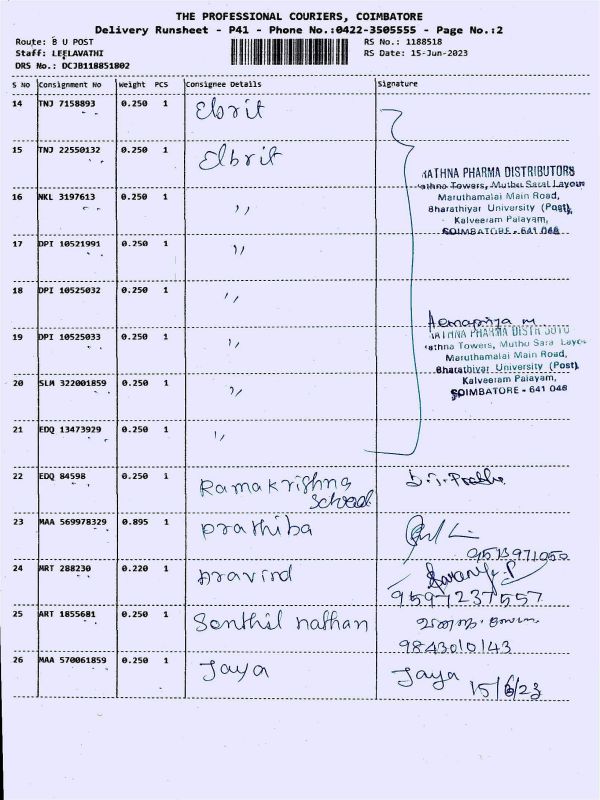 THE PROFESSIONAL COURIERS, COIMBATORE
Delivery Runsheet - P41 - Phone No.:0422-3505555 - Page No.:2
Route: B U POST
RS No.: 1188518
Staff: LEELAVATHI
RS Date: 15-Jun-2023
DRS No.: DCJB118851802
S No Consignment No Weight PCS Consignee Details Signature
14 TNJ 7158893 0.250 1 Elbrit
15 TNJ 22550132 0.250 1 Elbrit
RATHNA PHARMA DISTRIBUTORS
Rathna Towers, Muthu Saral Layout
16 NKL 3197613 0.250 1 ,, Maruthamalai Main Road,
Bharathiyar University (Post),
Kalveeram Palayam,
COIMBATORE - 641 046
17 DPI 10521991 0.250 1 ,,
18 DPI 10525032 0.250 1 ,,
Hemapriya M
RATHNA PHARMA DISTRIBUTO
19 DPI 10525033 0.250 1 ,, Rathna Towers, Muthu Saral Layou
Maruthamalai Main Road,
Bharathiyar University (Post),
20 SLM 322001859 0.250 1 ,, Kalveeram Palayam,
COIMBATORE - 641 046
21 EDQ 13473929 0.250 1 ,,
22 EDQ 84598 0.250 1 Ramakrishna
School
23 MAA 569978329 0.895 1 prathiba
9513971050
24 MRT 288230 0.220 1 Aravind Saranya.P
9597237557
25 ART 1855681 0.250 1 Senthil nathan
9843010143
26 MAA 570061859 0.250 1 Jaya Jaya
15/6/23